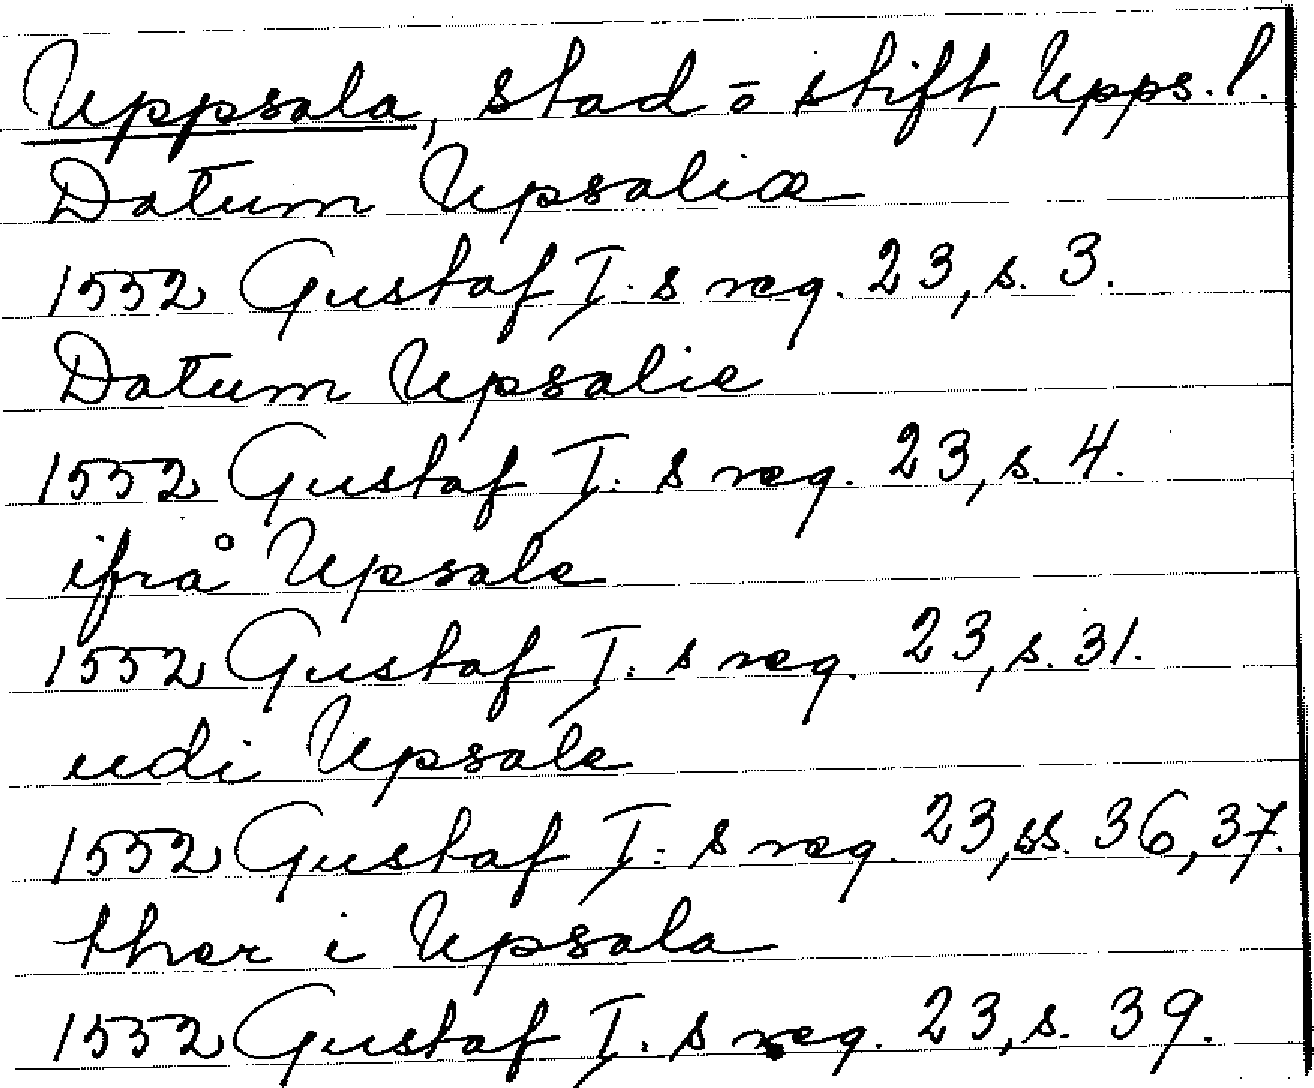 Uppsala, stad o stift, Upps. l.
Datum Upsaliæ
1552 Gustaf I:s reg. 23, s. 3.
Datum Upsalie
1552 Gustaf I:s reg. 23, s. 4.
ifrå Upsale
1552 Gustaf I:s reg. 23, s. 31.
udi Upsale
1552 Gustaf I:s reg. 23, ss. 36, 37.
ther i Upsala
1552 Gustaf I:s reg. 23, s. 39.